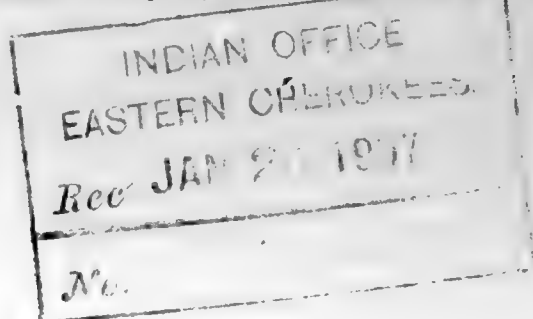 INDIAN OFFICE
EASTERN CHEROKEES.
Rec' JAN
No.